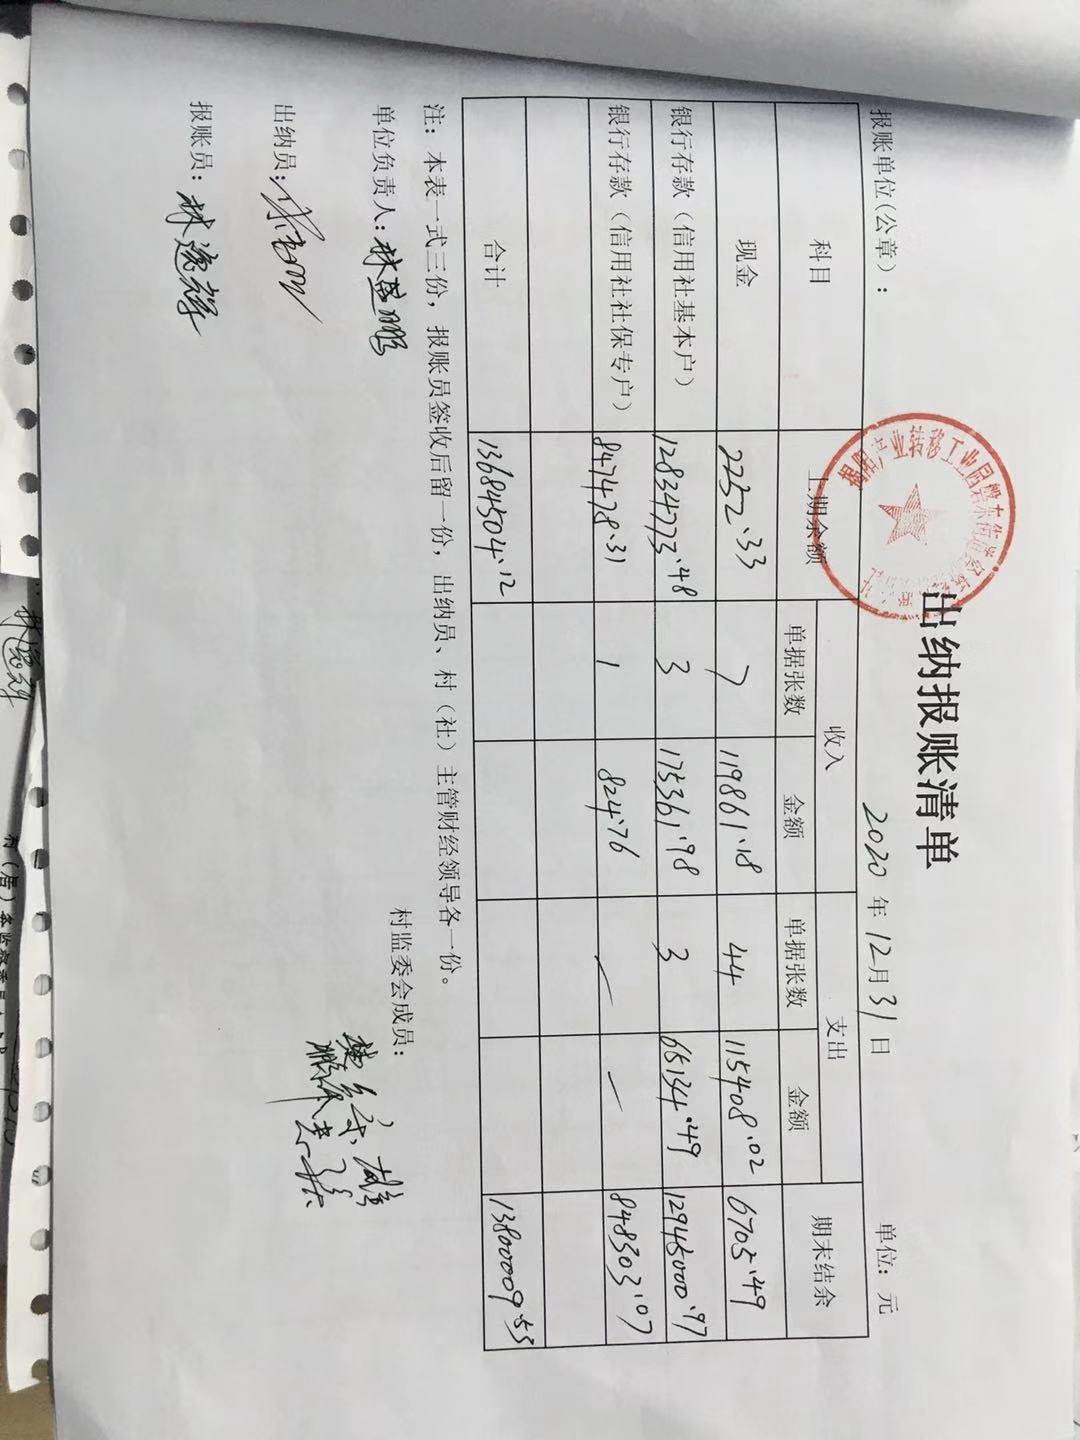 出纳报账清单
报账单位(公章): 2020年12月31日 单位:元
科目 上期余额 收入 支出 期末结余
单据张数 金额 单据张数 金额
现金 2252.33 7 119861.18 44 115408.02 6705.49
银行存款(信用社基本户) 12834773.48 3 175361.98 3 65134.49 12945000.97
银行存款(信用社社保专户) 847478.31 1 824.76 — — 848303.07
合计 13684504.12 13800009.53
注:本表一式三份,报账员签收后留一份,出纳员、村(社)主管财经领导各一份。
单位负责人: 村监委会成员:
出纳员:
报账员:林逸辉